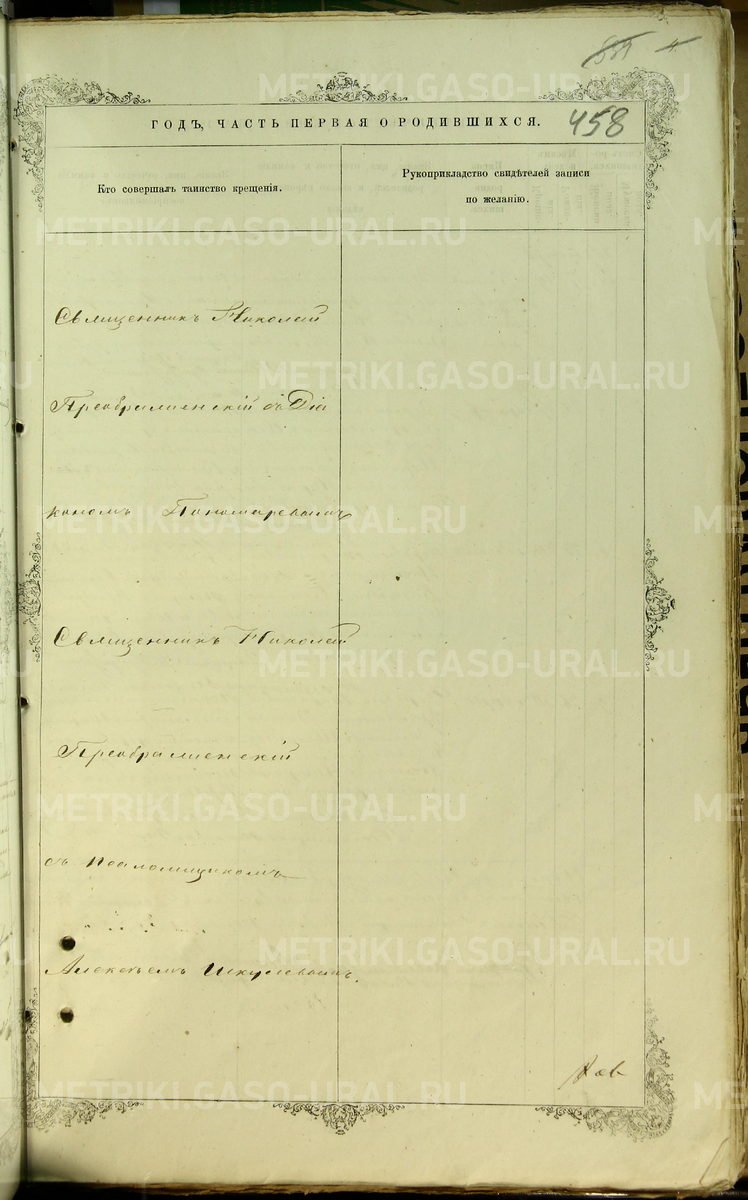 458
ГОДЪ, ЧАСТЬ ПЕРВАЯ О РОДИВШИХСЯ.
Кто совершалъ таинство крещенія.
Рукоприкладство свидѣтелей записи
по желанію.
Священникъ Николай
Преображенскій съ Діа
кономъ Пономаревымъ
Священникъ Николай
Преображенскій
съ псаломщикомъ
Алексѣемъ
METRIKI.GASO-URAL.RU